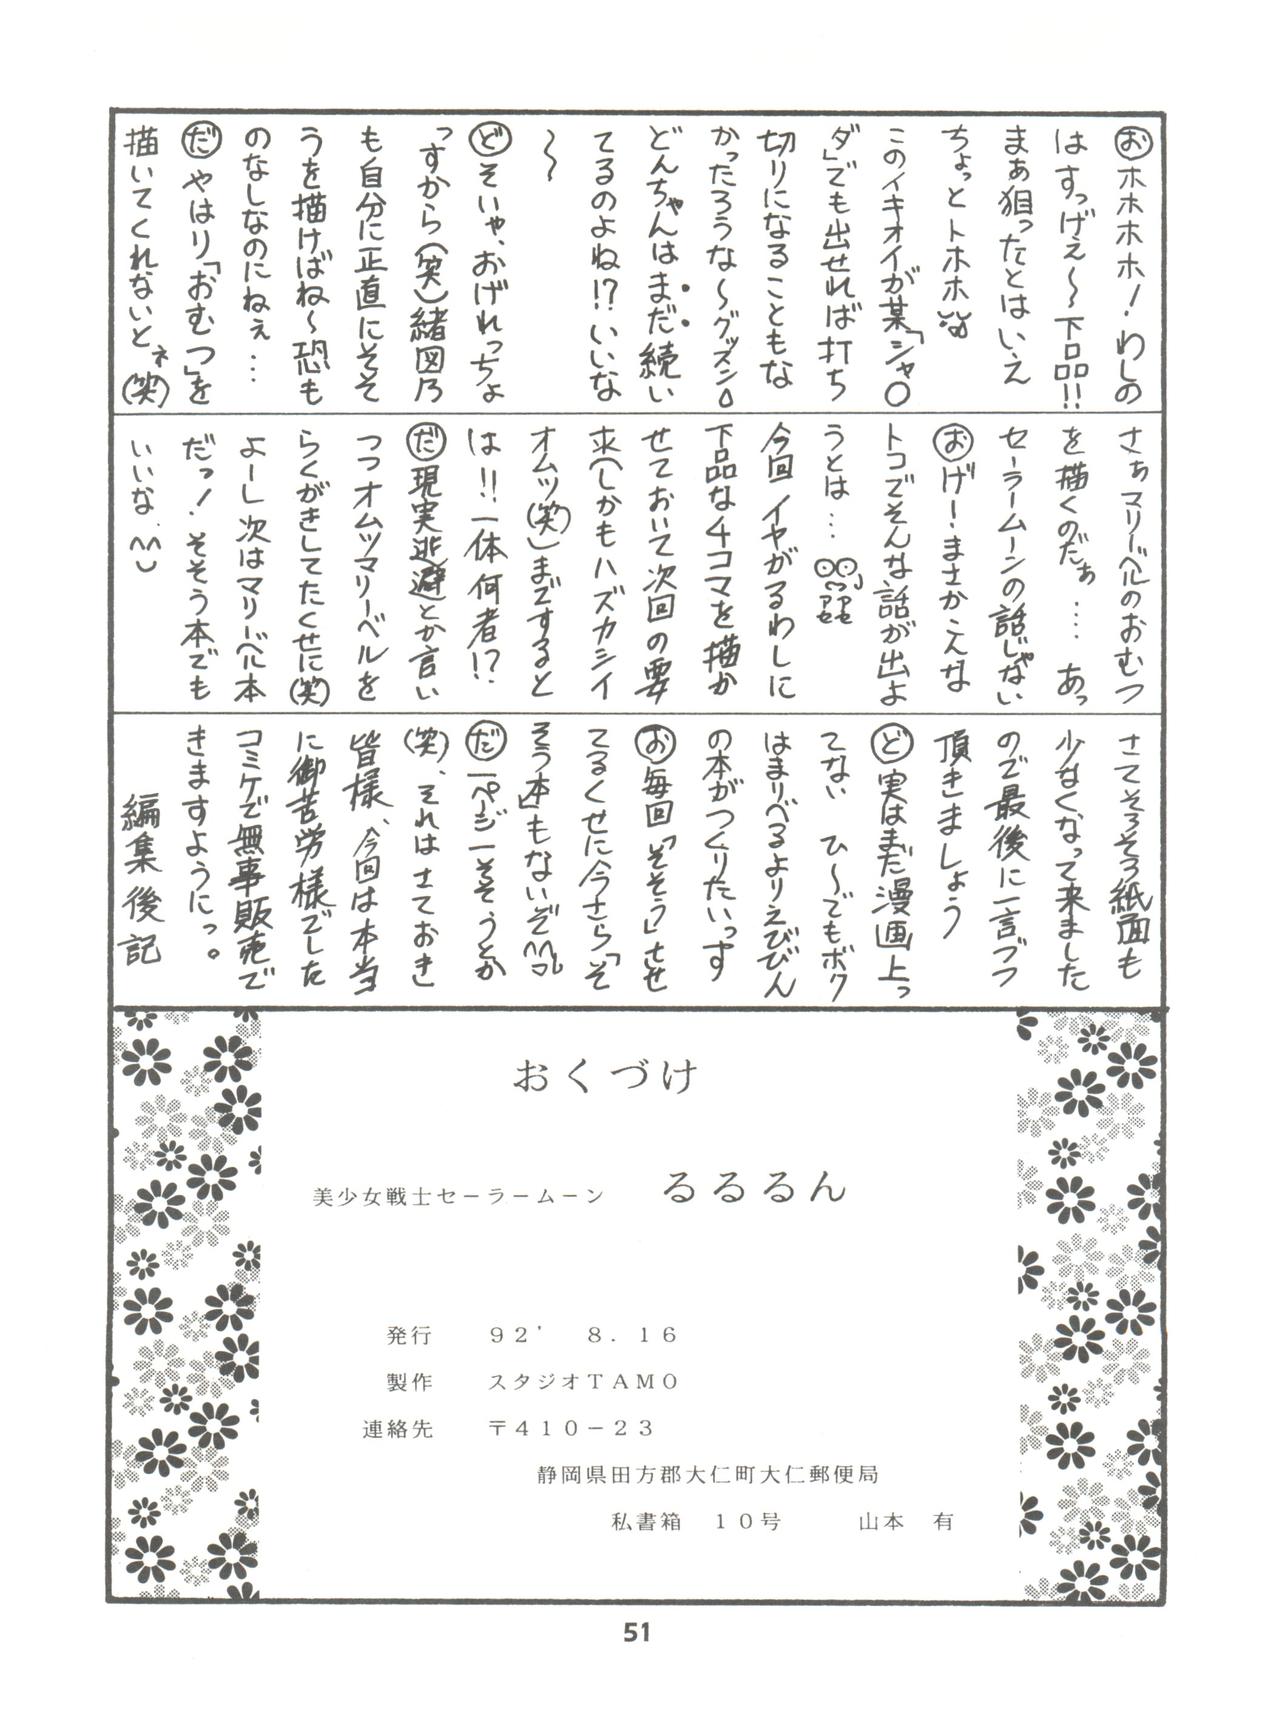 おホホホホ！わしの
はすっげぇ〜下品!!
まぁ狙ったとはいえ
ちょっとトホホ
このイキオイが某「シャ○
ダ」でも出せれば打ち
切りになることもな
かったろうな〜グッスン
どんちゃんはまだ続い
てるのよね!?いいな
〜
どそいや、おげれっちょ
っすから(笑)緒図乃
も自分に正直にそそ
うを描けばね〜恐も
のなしなのにねぇ…
だやはり「おむつ」を
描いてくれないとネ(笑)
さぁマリーベルのおむつ
を描くのだぁ…. あっ
セーラームーンの話じゃない
おげー！まさかこんな
トコでそんな話が出よ
うとは…
今回イヤがるわしに
下品な4コマを描か
せておいて次回の要
求(しかもハズカシイ
オムツ(笑))まですると
は!!一体何者!?
だ現実逃避とか言い
つつオムツマリーベルを
らくがきしてたくせに(笑)
よーし次はマリーベル本
だっ！そそう本でも
いいな.^^
さてそろそろ紙面も
少なくなって来ました
ので最後に一言づつ
頂きましょう
ど実はまだ漫画上っ
てない ひ〜でもボク
はまりべるよりえびびん
の本がつくりたいっす
お毎回「そそう」させ
てるくせに今さら「そ
そう本」もないぞ^^
だ一ページ一そそうとか
(笑)、それはさておき
皆様、今回は本当
に御苦労様でした
コミケで無事販売で
きますようにっ。
編集後記
おくづけ
美少女戦士セーラームーン　るるるん
発行　９２’　８．１６
製作　スタジオＴＡＭＯ
連絡先　〒４１０－２３
静岡県田方郡大仁町大仁郵便局
私書箱　１０号　　山本　有
51